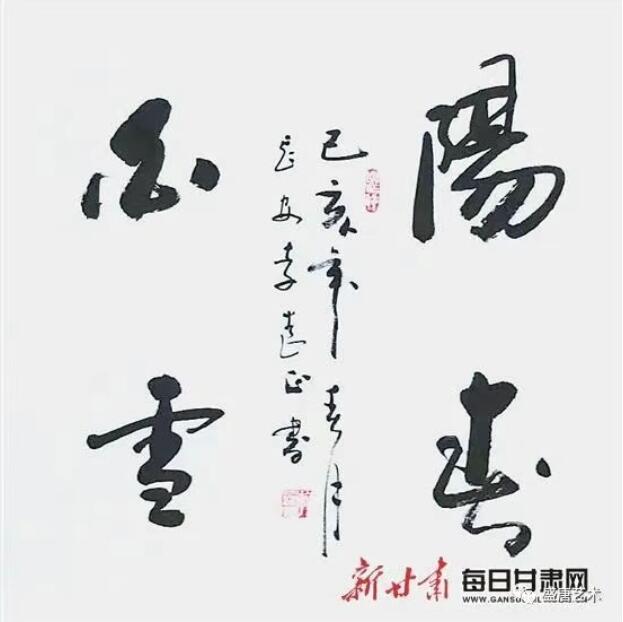 陽春
白雪
己亥年春月
长安李正书
新甘肃 每日甘肃网
盛唐艺术